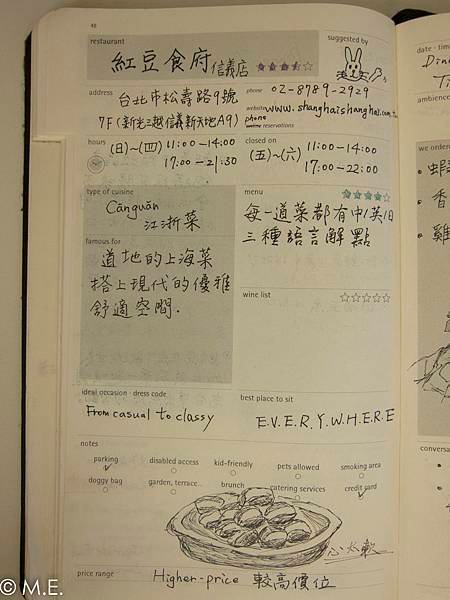 48
restaurant
紅豆食府 信義店
suggested by
address
台北市松壽路9號
7F (新光三越信義新天地A9)
phone 02-8789-2929
website www.shanghaishanghai.com.tw
phone
online reservations
hours
(日)~(四) 11:00-14:00
17:00-21:30
closed on
(五)~(六) 11:00-14:00
17:00-22:00
type of cuisine
Cānguān
江浙菜
menu
每一道菜都有中/英/日
三種語言解點
famous for
道地的上海菜
搭上現代的優雅
舒適空間.
wine list
ideal occasion · dress code
From casual to classy
best place to sit
E.V.E.R.Y.W.H.E.R.E
notes
parking disabled access kid-friendly pets allowed smoking area
doggy bag garden, terrace... brunch catering services credit card
心太軟
price range
Higher-price 較高價位
date · time
ambience
we ordered
蝦
香
雞
conversa
© M.E.